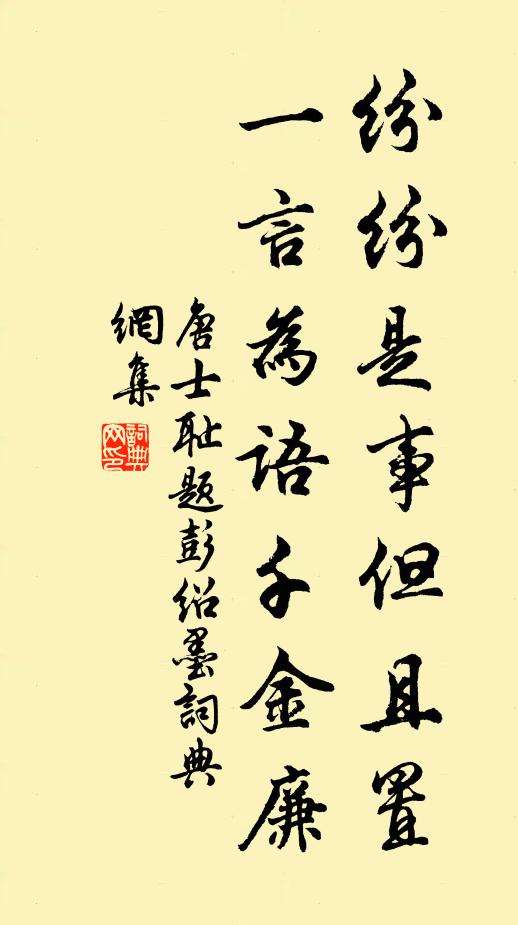 纷纷是事但且置
一言為语千金廉
唐士耻题彭绍墨詞典
網集
詞典网印